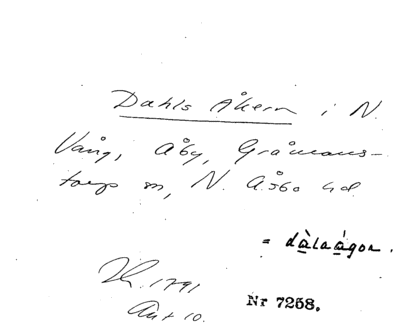 Dahls Åkern i N.
Vång, Åby, Gråmans-
torps sn, N. Åsbo hd
= dàlaágor.
Lk. 1791
Akt 10.
Nr 7258.